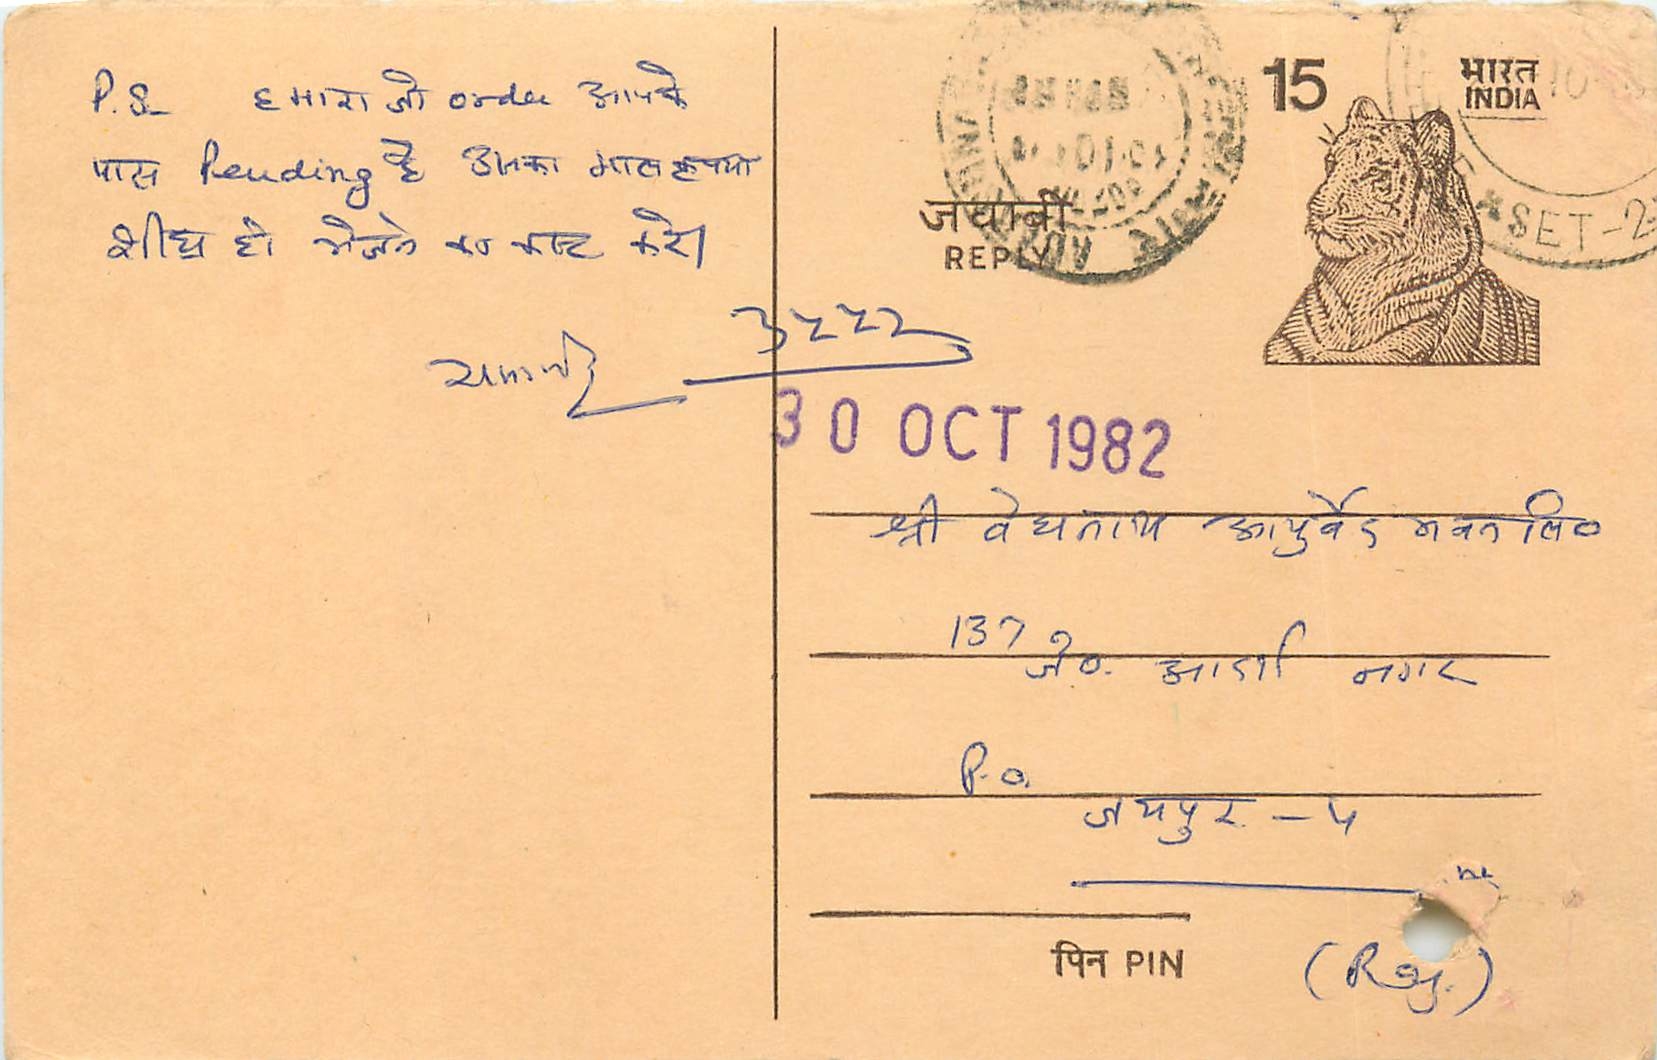 P.S. हमारा जो order आपके
पास Pending है उसका माल कृपया
शीघ्र ही भेजने का कष्ट करें।
15
भारत
INDIA
जवाबी
REPLY
SET-2
30 OCT 1982
श्री वैद्यनाथ आयुर्वेद भवन लि०
137
जे०. आदर्श नगर
P.O.
जयपुर - ५
पिन PIN
(Raj.)